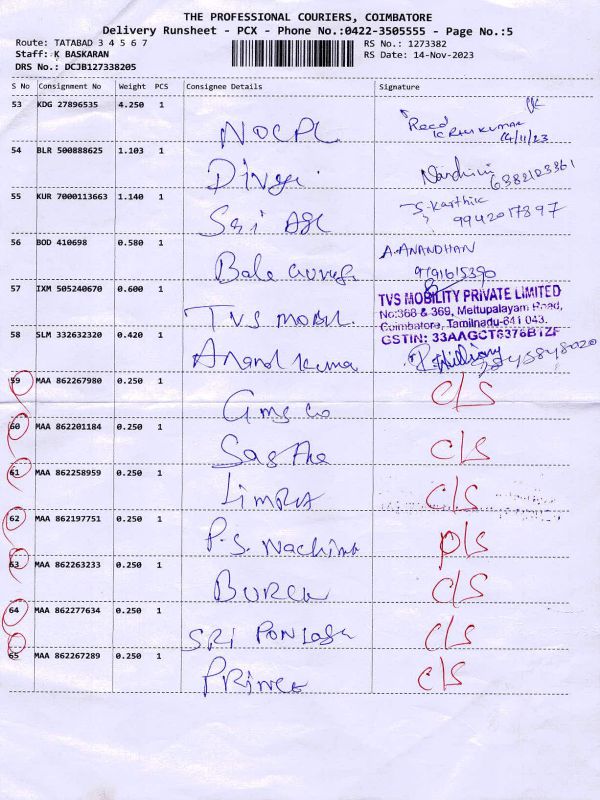 THE PROFESSIONAL COURIERS, COIMBATORE
Delivery Runsheet - PCX - Phone No.:0422-3505555 - Page No.:5
Route: TATABAD 3 4 5 6 7
RS No.: 1273382
Staff: K BASKARAN
RS Date: 14-Nov-2023
DRS No.: DCJB127338205
S No Consignment No Weight PCS Consignee Details Signature
53 KDG 27896535 4.250 1
NOCPL
Recd
14/11/23
54 BLR 500888625 1.103 1
Divya
Nandhini
6382123361
55 KUR 7000113663 1.140 1
Sri
S. Karthik
9942017897
56 BOD 410698 0.580 1
Bala
A. ANANDHAN
9791615390
57 IXM 505240670 0.600 1
TVS MOBIL
TVS MOBILITY PRIVATE LIMITED
No:368 & 369, Mettupalayam Road,
Coimbatore, Tamilnadu-641 043.
GSTIN: 33AAGCT6376B1ZF
58 SLM 332632320 0.420 1
Anand Kuma
59 MAA 862267980 0.250 1
C/S
60 MAA 862201184 0.250 1
Sastha
C/S
61 MAA 862258959 0.250 1
LIMRA
C/S
62 MAA 862197751 0.250 1
P.S. Nachimu
D/S
63 MAA 862263233 0.250 1
C/S
64 MAA 862277634 0.250 1
SRI
C/S
65 MAA 862267289 0.250 1
PRINCE
C/S